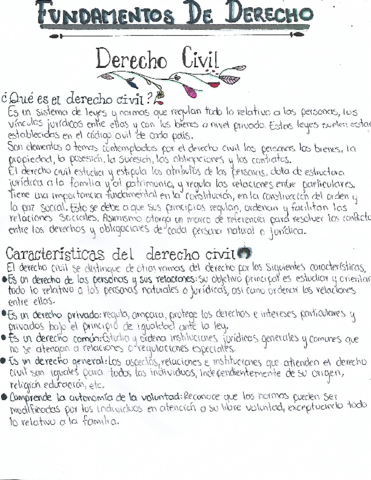 FUNDAMENTOS DE DERECHO
Derecho Civil
¿Qué es el derecho civil?
Es un sistema de leyes y normas que regulan todo lo relativo a las personas, los
vínculos jurídicos entre ellos y con los bienes a nivel privado. Estas leyes suelen estar
establecidas en el código civil de cada país.
Son elementos o temas contemplados por el derecho civil las personas los bienes, la
propiedad, la posesión, la sucesión, las obligaciones y los contratos.
El derecho civil estudia y estipula los atributos de las personas, dota de estructura
jurídica a la familia y al patrimonio, y regula las relaciones entre particulares.
Tiene una importancia fundamental en la constitución, en la construcción del orden y
la paz social. Esto se debe a que sus principios regulan, ordenan y facilitan las
relaciones sociales. Asimismo otorga un marco de referencia para resolver los conflictos
entre los derechos y obligaciones de cada persona natural o jurídica.
Características del derecho civil
El derecho civil se distingue de otras ramas del derecho por las siguientes características,
• Es un derecho de las personas y sus relaciones: Su objetivo principal es estudiar y orientar
todo lo relativo a las personas naturales o jurídicas, así como ordenar las relaciones
entre ellas.
• Es un derecho privado: regula, ampara, protege los derechos e intereses particulares y
privados bajo el principio de igualdad ante la ley.
• Es un derecho común: Estudia y ordena instituciones jurídicas generales y comunes que
no se atengan a relaciones o regulaciones especiales.
• Es un derecho general: Los aspectos, relaciones e instituciones que atienden el derecho
civil son iguales para todos los individuos, independientemente de su origen,
religión educación, etc.
• Comprende la autonomía de la voluntad: Reconoce que las normas pueden ser
modificadas por los individuos en atención a su libre voluntad, exceptuando todo
lo relativo a la familia.